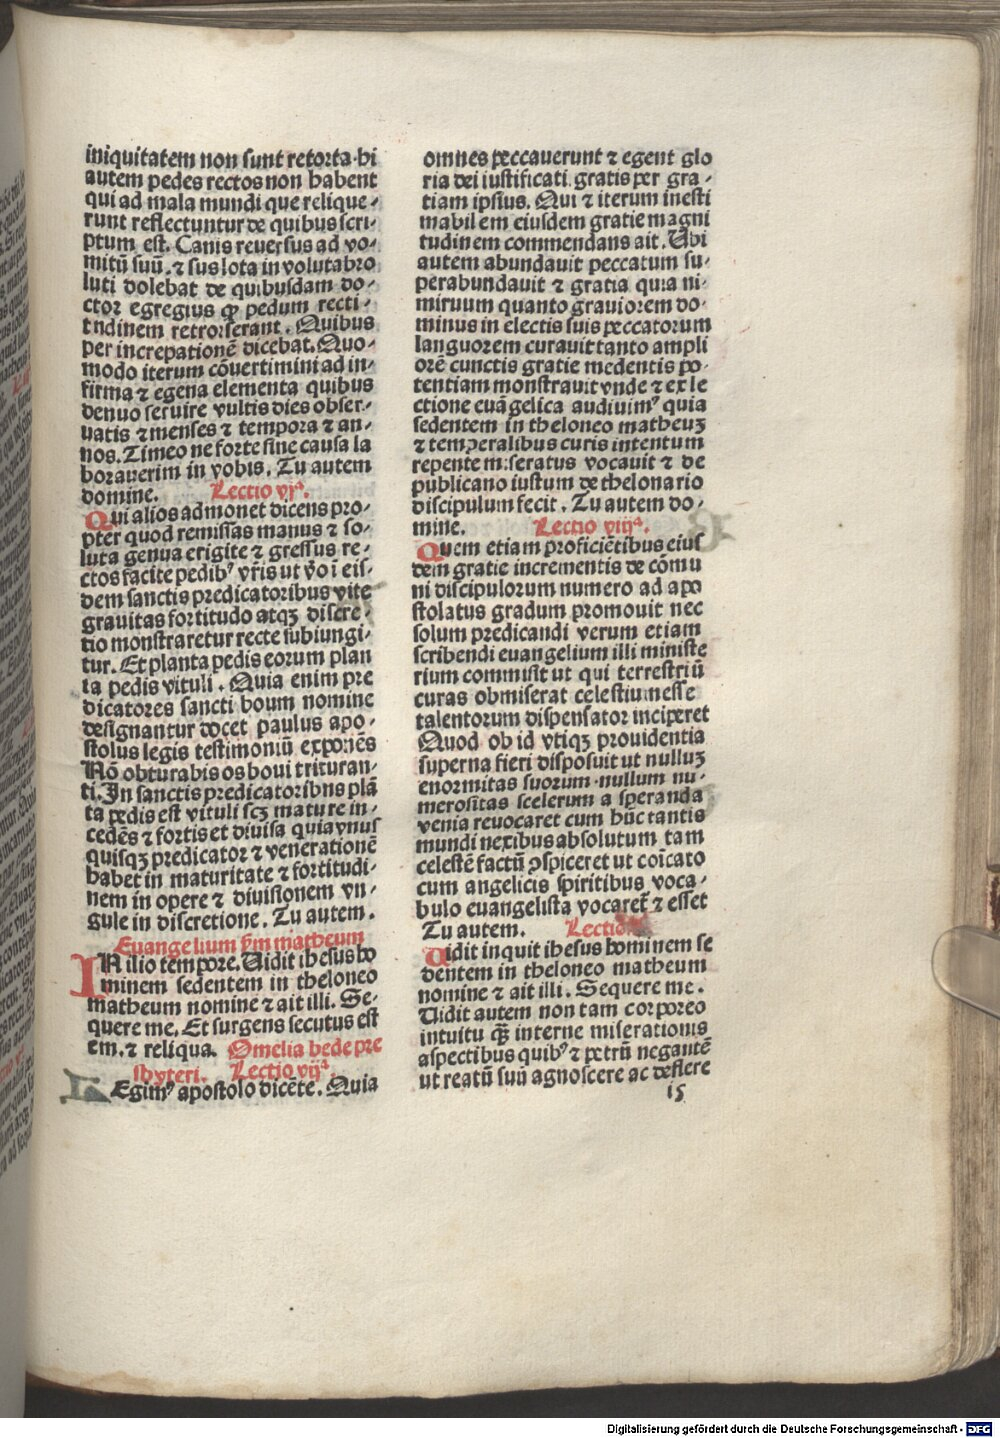 iniquitatem non sunt retorta·hi
autem pedes rectos non habent
qui ad mala mundi que relique⸗
runt reflectuntur de quibus scri⸗
ptum est. Canis reuersus ad vo⸗
mitū suū. ⁊ sus lota in volutabro
luti dolebat de quibusdam do⸗
ctor egregius ꝙ pedum recti⸗
tndinem retrorserant. Quibus
per increpationē dicebat. Quo⸗
modo iterum cōuertimini ad in⸗
firma ⁊ egena elementa quibus
denuo seruire vultis dies obser⸗
uatis ⁊ menses ⁊ tempora ⁊ an⸗
nos. Timeo ne forte sine causa la
borauerim in vobis. Tu autem
domine. Lectio vjª.
Qui alios admonet dicens pro⸗
pter quod remissas manus ⁊ so⸗
luta genua erigite ⁊ gressus re⸗
ctos facite pedibꝰ vr̄is ut v̄o i eis⸗
dem sanctis predicatoribus vite
grauitas fortitudo atqꝫ discre⸗
tio monstraretur recte subiungi⸗
tur. Et planta pedis eorum plan
ta pedis vituli. Quia enim pre
dicatores sancti boum nomine
designantur docet paulus apo⸗
stolus legis testimoniū exponēs
Nō obturabis os boui trituran⸗
ti. In sanctis predicatoribns plā
ta pedis est vituli scꝫ mature in⸗
cedēs ⁊ fortis et diuisa quia vnus
quisqꝫ predicator ⁊ venerationē
habet in maturitate ⁊ fortitudi⸗
nem in opere ⁊ diuisionem vn⸗
gule in discretione. Tu autem.
Euangelium s̄m matheum
IN illo tempore. Vidit ihesus ho
minem sedentem in theloneo
matheum nomine ⁊ ait illi. Se⸗
quere me. Et surgens secutus est
em. ⁊ reliqua. Omelia bede pre
sbyteri. Lectio vijª.
LEgimꝰ apostolo dicēte. Quia
omnes peccauerunt ⁊ egent glo
ria dei iustificati gratis per gra⸗
tiam ipsius. Qui ⁊ iterum inesti
mabilem eiusdem gratie magni
tudinem commendans ait. Vbi
autem abundauit peccatum su⸗
perabundauit ⁊ gratia quia ni⸗
miruum quanto grauiorem do⸗
minus in electis suis peccatorum
languorem curauit tanto ampli
orē cunctis gratie medentis po⸗
tentiam monstrauit vnde ⁊ ex le
ctione euāgelica audiuimꝰ quia
sedentem in theloneo matheuꝫ
⁊ temꝑalibus curis intentum
repente miseratus vocauit ⁊ de
publicano iustum de thelonario
discipulum fecit. Tu autem do⸗
mine. Lectio viijª.
Quem etiam proficiētibus eius
dem gratie incrementis de cōmu
ni discipulorum numero ad apo
stolatus gradum promouit nec
solum predicandi verum etiam
scribendi euangelium illi ministe
rium commisit ut qui terrestriū
curas obmiserat celestium esse
talentorum dispensator inciperet
Quod ob id vtiqꝫ prouidentia
superna fieri disposuit ut nulluꝫ
enormitas suorum·nullum nu⸗
merositas scelerum a speranda
venia reuocaret cum hūc tantis
mundi nexibus absolutum tam
celestē factū ꝯspiceret ut coīcato
cum angelicis spiritibus voca⸗
bulo euangelista vocaret̄ ⁊ esset
Tu autem. Lectio
Vidit inquit ihesus hominem se
dentem in theloneo matheum
nomine ⁊ ait illi. Sequere me.
Vidit autem non tam corporeo
intuitu q̄ꝫ interne miserationis
aspectibus quibꝰ ⁊ petrū negantē
ut reatū suū agnoscere ac deflere
15
Digitalisierung gefördert durch die Deutsche Forschungsgemeinschaft - DFG